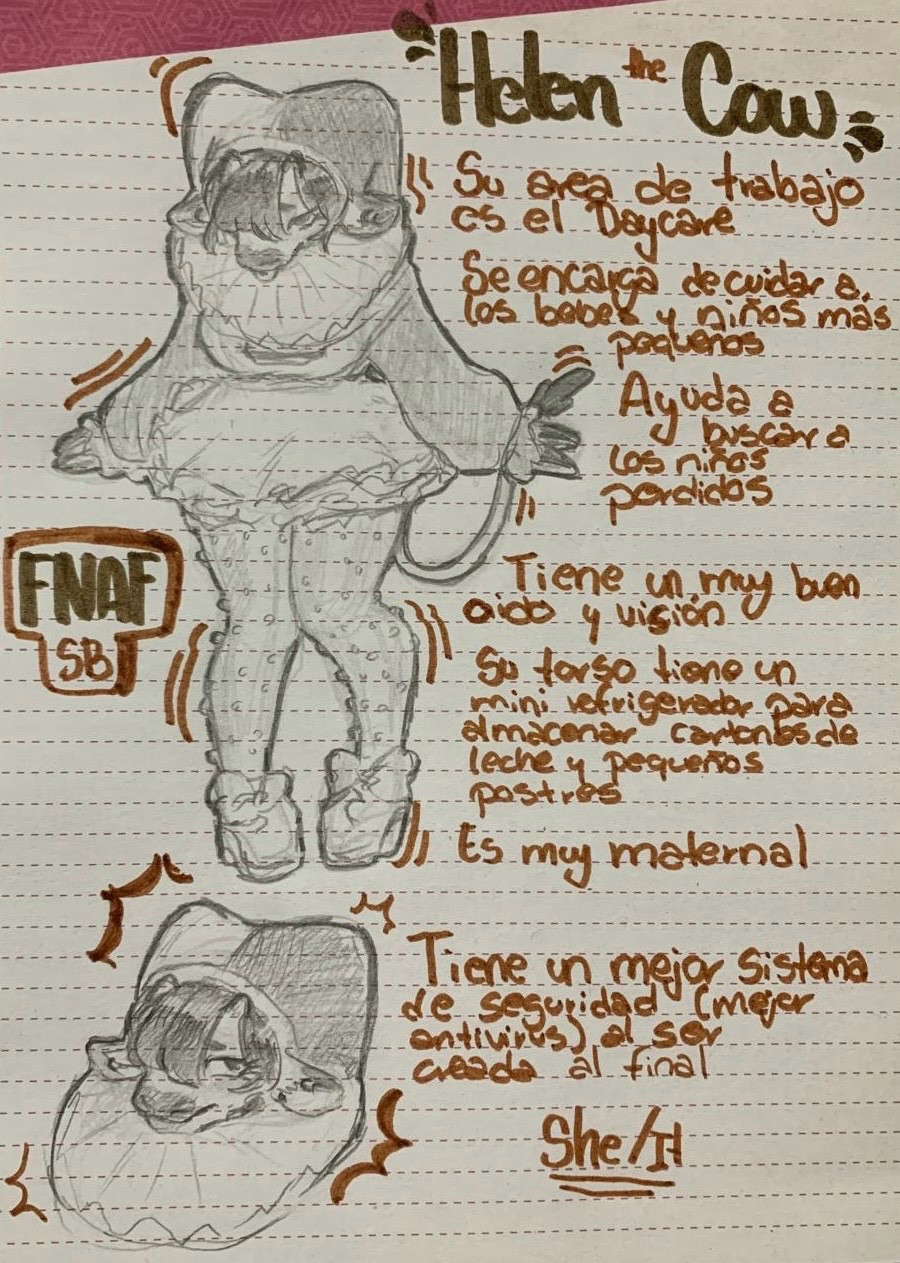 Helen the Cow
Su area de trabajo
es el Daycare
Se encarga de cuidar a
los bebes y niños más
pequeños
Ayuda a
buscar a
los niños
perdidos
FNAF
SB
Tiene un muy buen
oido y visión
Su torso tiene un
mini refrigerador para
almacenar cartones de
leche y pequeños
postres
Es muy maternal
Tiene un mejor sistema
de seguridad (mejor
antivirus) al ser
creada al final
She/It